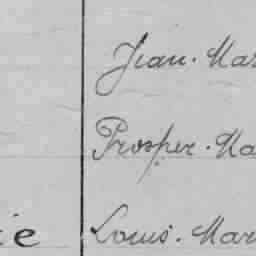 Jean. Mar
Prosper. Ma
ie Louis. Mar